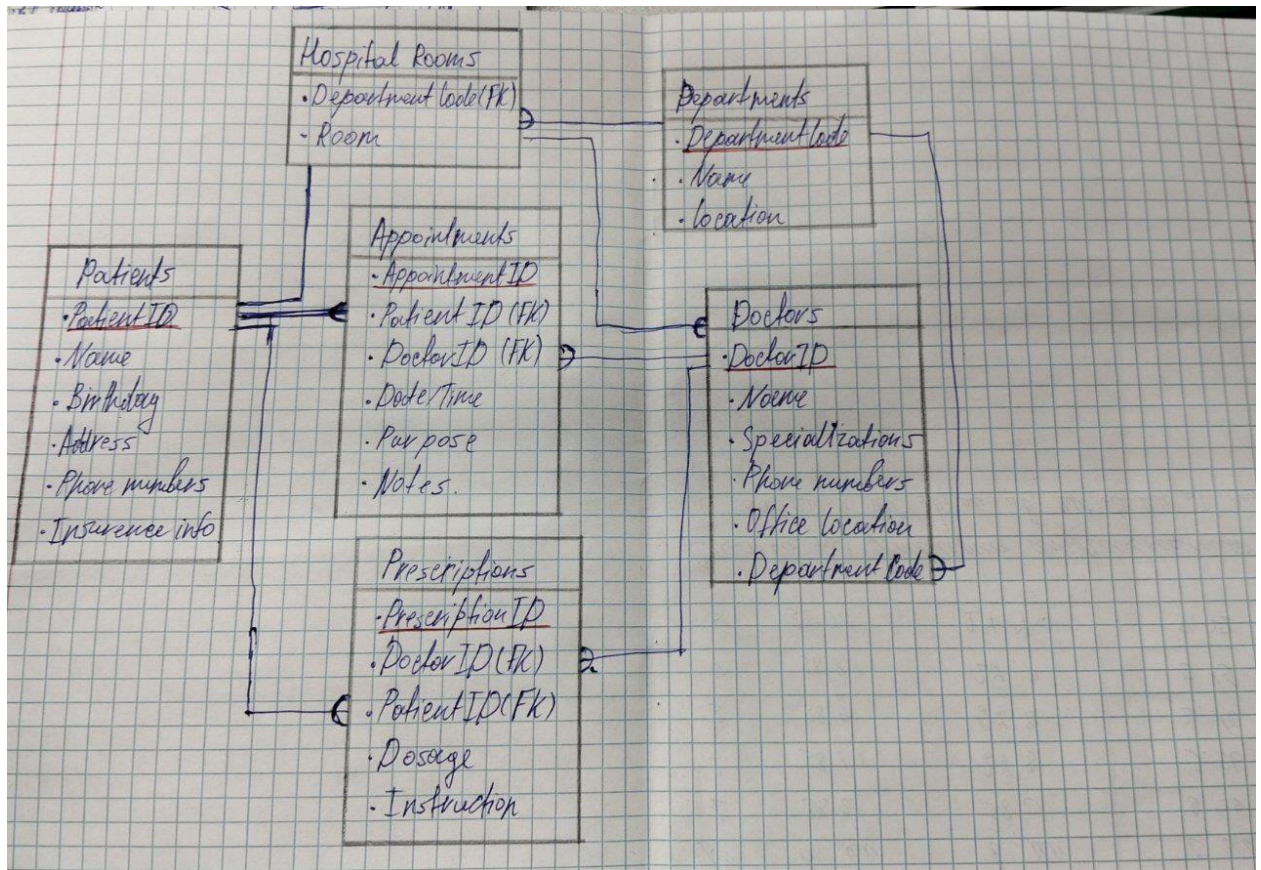 Hospital Rooms
·Department Code (FK)
- Room
Departments
·DepartmentCode
·Name
·Location
Patients
·PatientID
·Name
·Birthday
·Address
·Phone numbers
·Insurence info
Appointments
·AppointmentID
·Patient ID (FK)
·DoctorID (FK)
·Date/Time
·Purpose
·Notes.
Doctors
·DoctorID
·Name
·Specializations
·Phone numbers
·Office location
·Department Code
Prescriptions
·PrescriptionID
·DoctorID (FK)
·PatientID (FK)
·Dosage
·Instruction